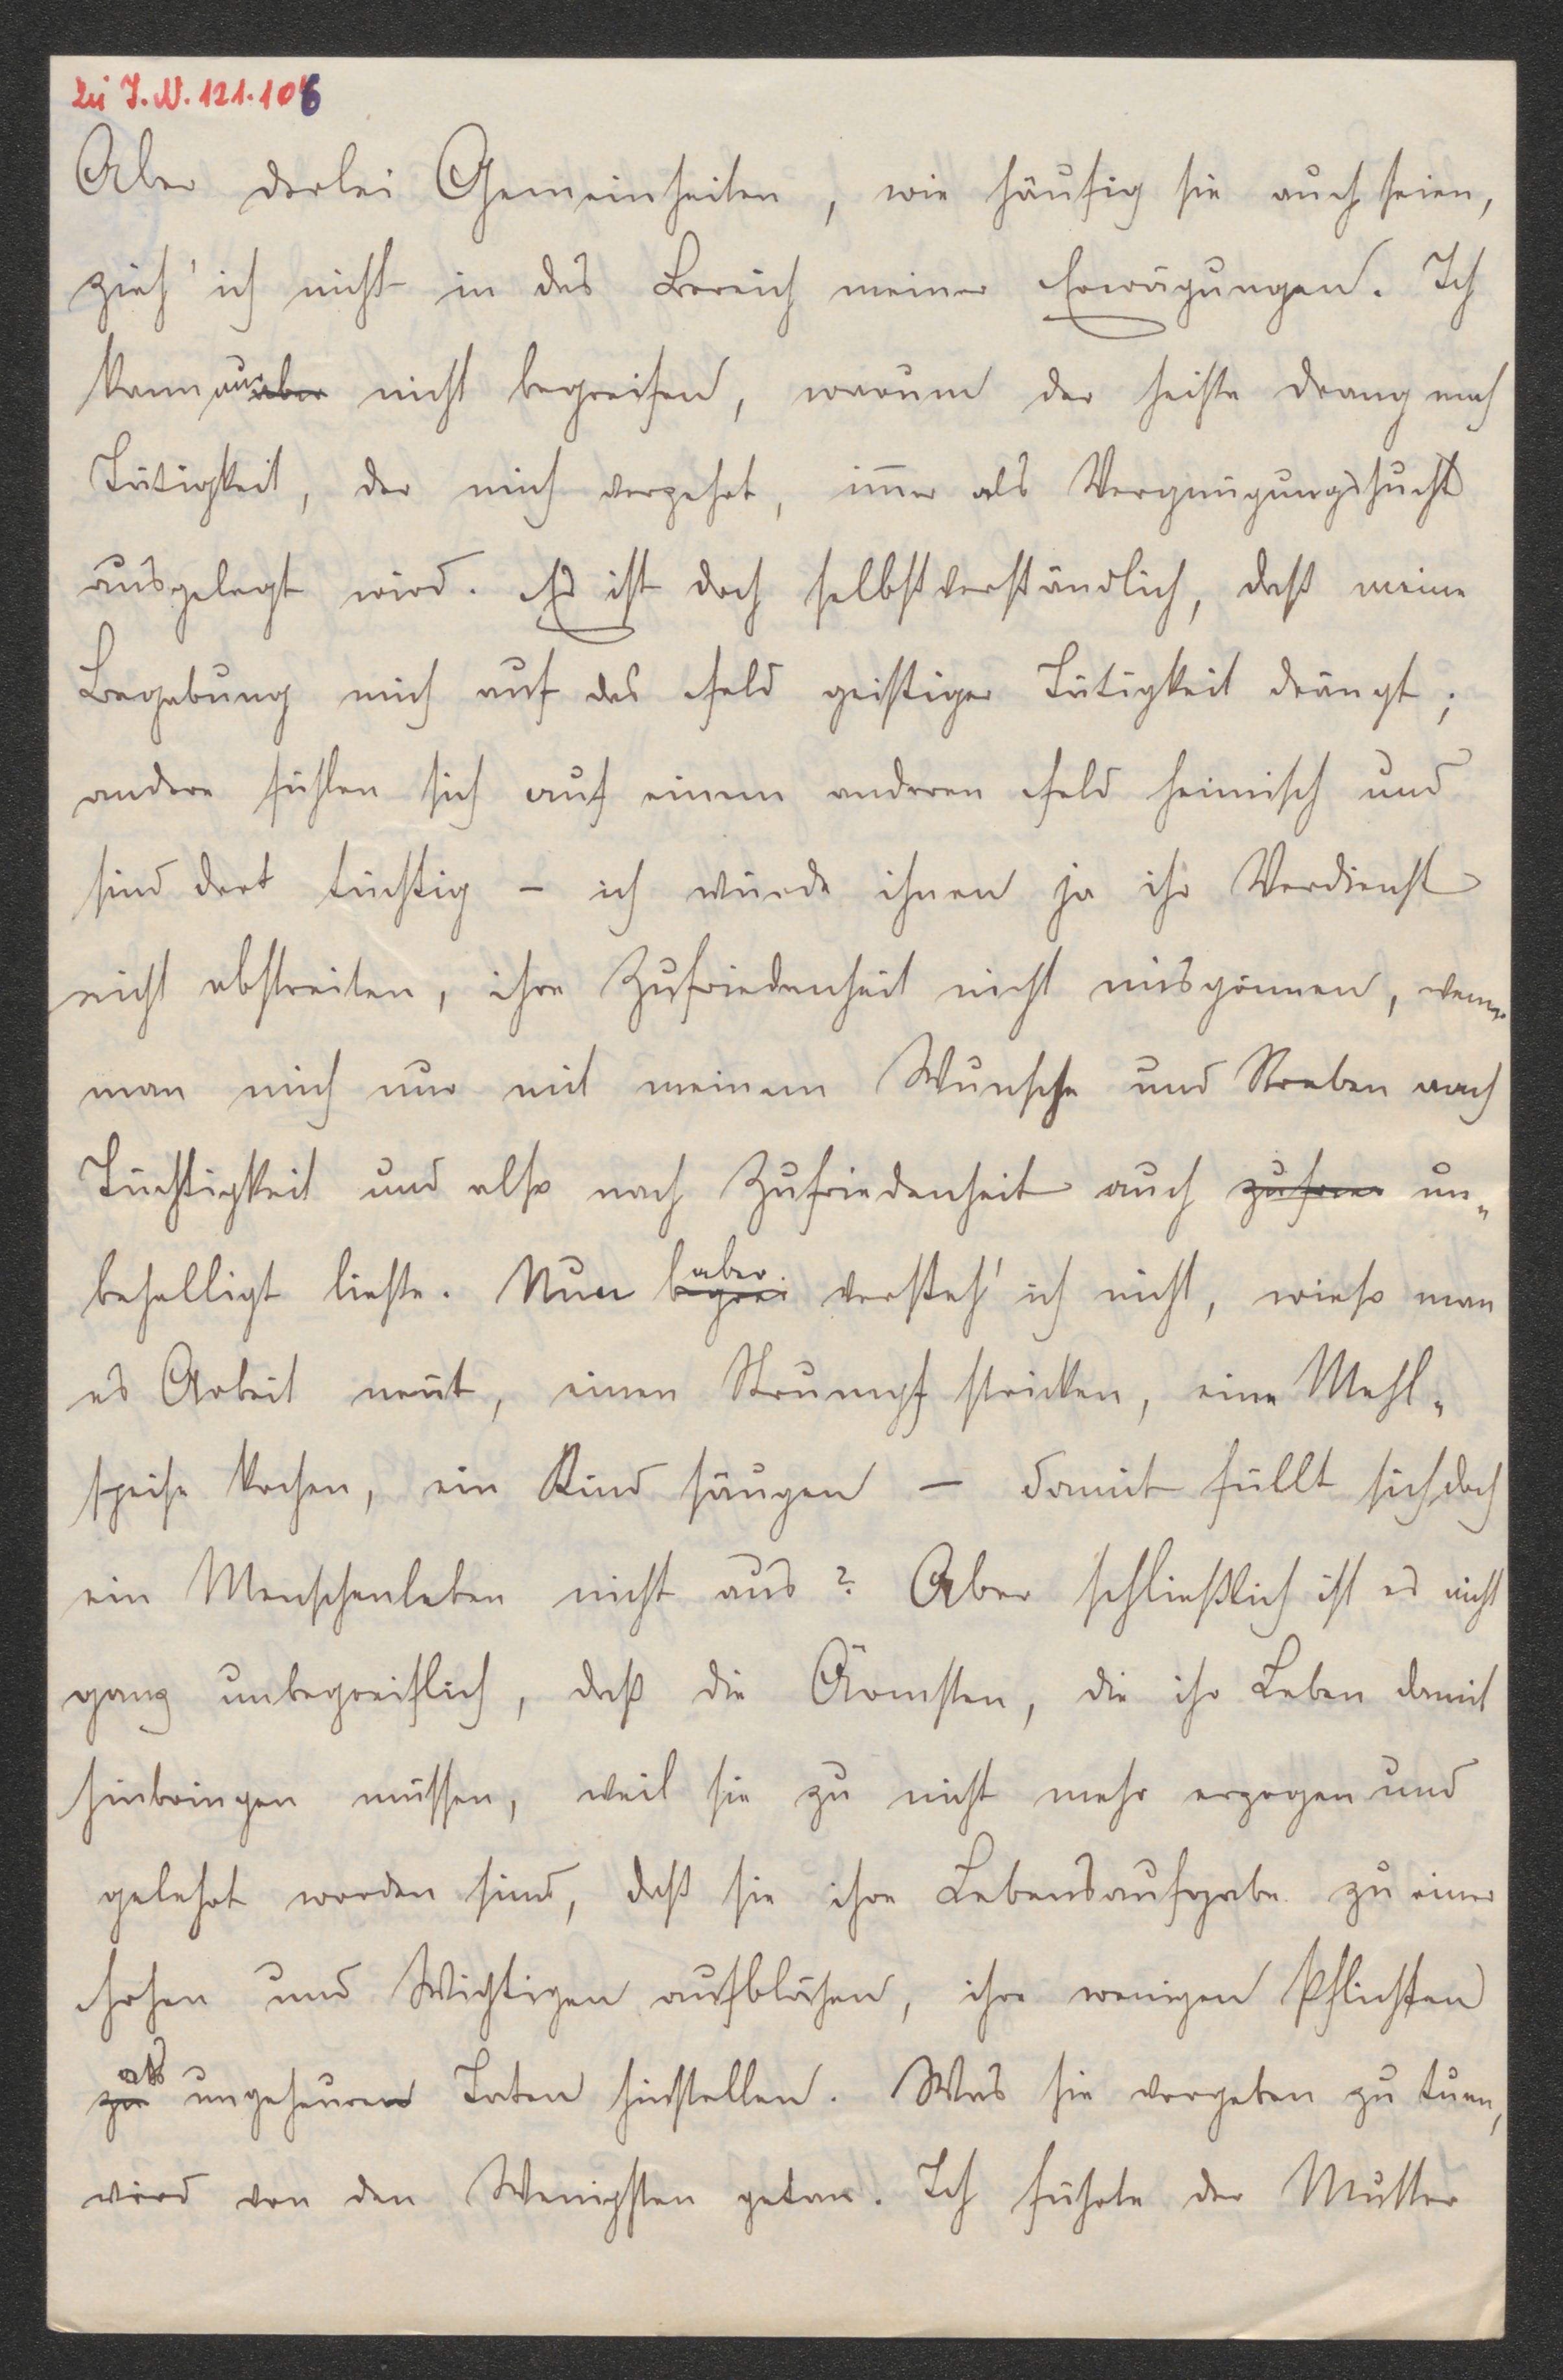 zu J. N. 121.106
Aber derlei Gemeinheiten, wie häufig sie auch seien,
zieh' ich nicht in das Bereich meiner Erwägungen. Ich
kann nur aber nicht begreifen, warum der heiße Drang nach
Tätigkeit, der mich verzehrt, im̅er als Vergnügungssucht
ausgelegt wird. Es ist doch selbstverständlich, daß meine
Begabung mich auf das Feld geistiger Tätigkeit drängt;
andere fühlen sich auf einem anderen Feld heimisch und
sind dort tüchtig – ich würde ihnen ja ihr Verdienst
nicht abstreiten, ihre Zufriedenheit nicht misgönnen, wenn
man mich nur mit meinem Wunsche und Streben nach
Tüchtigkeit und also nach Zufriedenheit auch zufrie un-
behelligt ließe. Nun aber begrei versteh' ich nicht, wieso man
es Arbeit nen̅t, einen Strumpf stricken, eine Mehl-
speise kochen, ein Kind säugen – damit füllt sich doch
ein Menschenleben nicht aus? Aber schließlich ist es nicht
ganz unbegreiflich, daß die Ärmsten, die ihr Leben damit
hinbringen müssen, weil sie zu nicht mehr erzogen und
gelehrt worden sind, daß sie ihre Lebensaufgabe zu einer
Hohen und Wichtigen aufblähen, ihre wenigen Pflichten
zu als ungeheuren Taten hinstellen. Was sie vorgeben zu tuen,
wird von den Wenigsten getan. Ich führte der Mutter